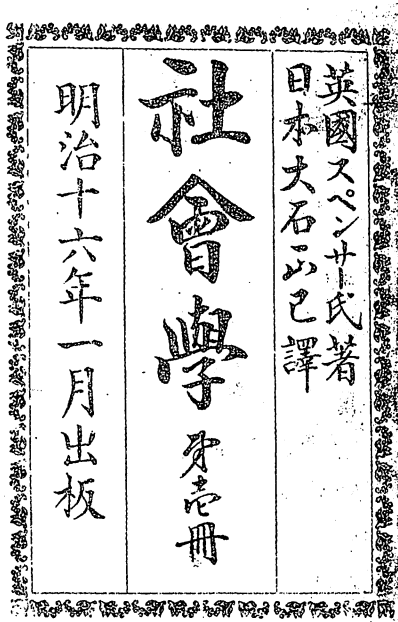 英國スペンサー氏著
日本大石正己譯
社會學 第壱冊
明治十六年一月出板